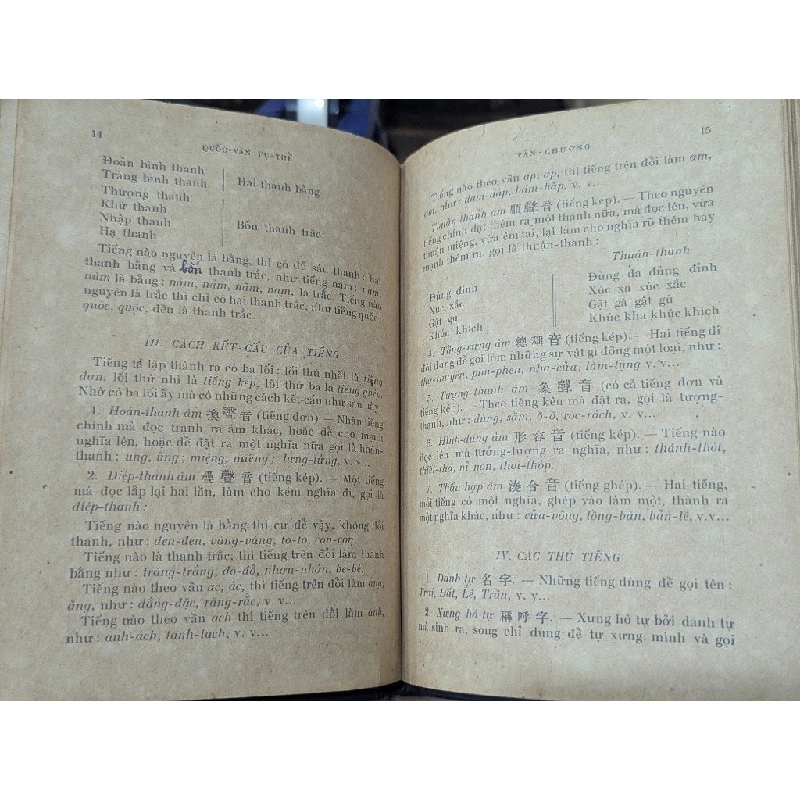 14
QUỐC-VĂN CỤ-THỂ
Đoản bình thanh
Tràng bình thanh
Hai thanh bằng
Thượng thanh
Khứ thanh
Nhập thanh
Hạ thanh
Bốn thanh trắc
Tiếng nào nguyên là bằng, thì có đề sắc thanh: hai
thanh bằng và bốn thanh trắc, như tiếng nam:
là bằng: nám, nãm, nảm, nạm, là trắc. Tiếng nào
nguyên là trắc thì chỉ có hai thanh trắc, như tiếng quốc
quốc, quộc, đều là thanh trắc.
III. CÁCH KẾT-CẤU CỦA TIẾNG
Tiếng ta lập thành ra có ba lối: lối thứ nhất là tiếng
đơn, lối thứ nhì là tiếng kép, lối thứ ba là tiếng ghép.
Nhờ có ba lối ấy mà có những cách kết-cấu như sau này.
1. Hoán-thanh âm 換聲音 (tiếng đơn) — Nhân tiếng
chính mà đọc tránh ra âm khác, hoặc để cho mạnh
nghĩa lên, hoặc để đặt ra một nghĩa nữa gọi là hoán-
thanh: ưng, ừng; miệng, miềng; lưng-lửng, v.v...
2. Điệp-thanh âm 疊聲音 (tiếng kép). — Một tiếng
mà đọc lắp lại hai lần, làm cho kém nghĩa đi, gọi là
điệp-thanh:
Tiếng nào nguyên là bằng thì cứ để vậy, không đổi
thanh, như: đen-đen, vàng-vàng, to-to, con-con.
Tiếng nào là thanh trắc, thì tiếng trên đổi làm thanh
bằng như: trăng-trắng, đo-đỏ, nhơn-nhớn, be-bé.
Tiếng nào theo vần ac, ăc, thì tiếng trên đổi làm ang,
ăng, như: đằng-đặc, răng-rắc, v. v...
Tiếng nào theo vần ach thì tiếng trên đổi làm anh,
như: anh-ách, tanh-tạch, v. v...
15
VĂN-CHƯƠNG
Tiếng nào theo vần ap, ơp, thì tiếng trên đổi làm am,
ơm, như: v. v...
Thuận thanh âm 順聲音 (tiếng kép). — Theo nguyên
tiếng chính đặt thêm ra một thanh nữa, mà đọc lên, vừa
thuận miệng, vừa êm tai, lại làm cho nghĩa rõ thêm hay
mạnh thêm ra, gọi là thuận-thanh:
Thuận-thanh
Đủng đỉnh
Đủng đa đủng đỉnh
Xúc xắc
Xúc xa xúc xắc
Gật gù
Gật gà gật gù
Khúc khích
Khúc kha khúc khích
4. Tổng-xưng âm 總稱音 (tiếng kép). — Hai tiếng đi
đôi dùng để gọi gồm những sự vật gì đồng một loại, như:
nhà-cửa, v. v...
5. Tượng-thanh âm 象聲音 (có cả tiếng đơn và
tiếng kép). — Theo tiếng kêu mà đặt ra, gọi là tượng-
thanh, như: đùng, sầm, róc-rách, v.v...
6. Hình-dung âm 形容音 (tiếng kép). — Tiếng nào
đọc lên mà tưởng-tượng ra nghĩa, như: thánh-thót,
nỉ non, thoi-thóp.
7. Thấu hợp âm 湊合音 (tiếng ghép). — Hai tiếng,
mỗi tiếng có một nghĩa, ghép vào làm một, thành ra
một nghĩa khác, như: cửa-võng, lòng-bàn, bản-lề, v.v...
IV. CÁC THỨ TIẾNG
1. Danh tự 名字. — Những tiếng dùng để gọi tên:
Trời, Đất, Lê, Trần, v.v...
2. Xưng hô tự 稱呼字. — Xưng hô tự bởi danh tự
mà sinh ra, song chỉ dùng để tự xưng mình và gọi